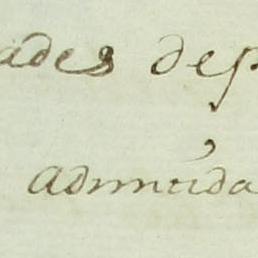 ades des
admitida